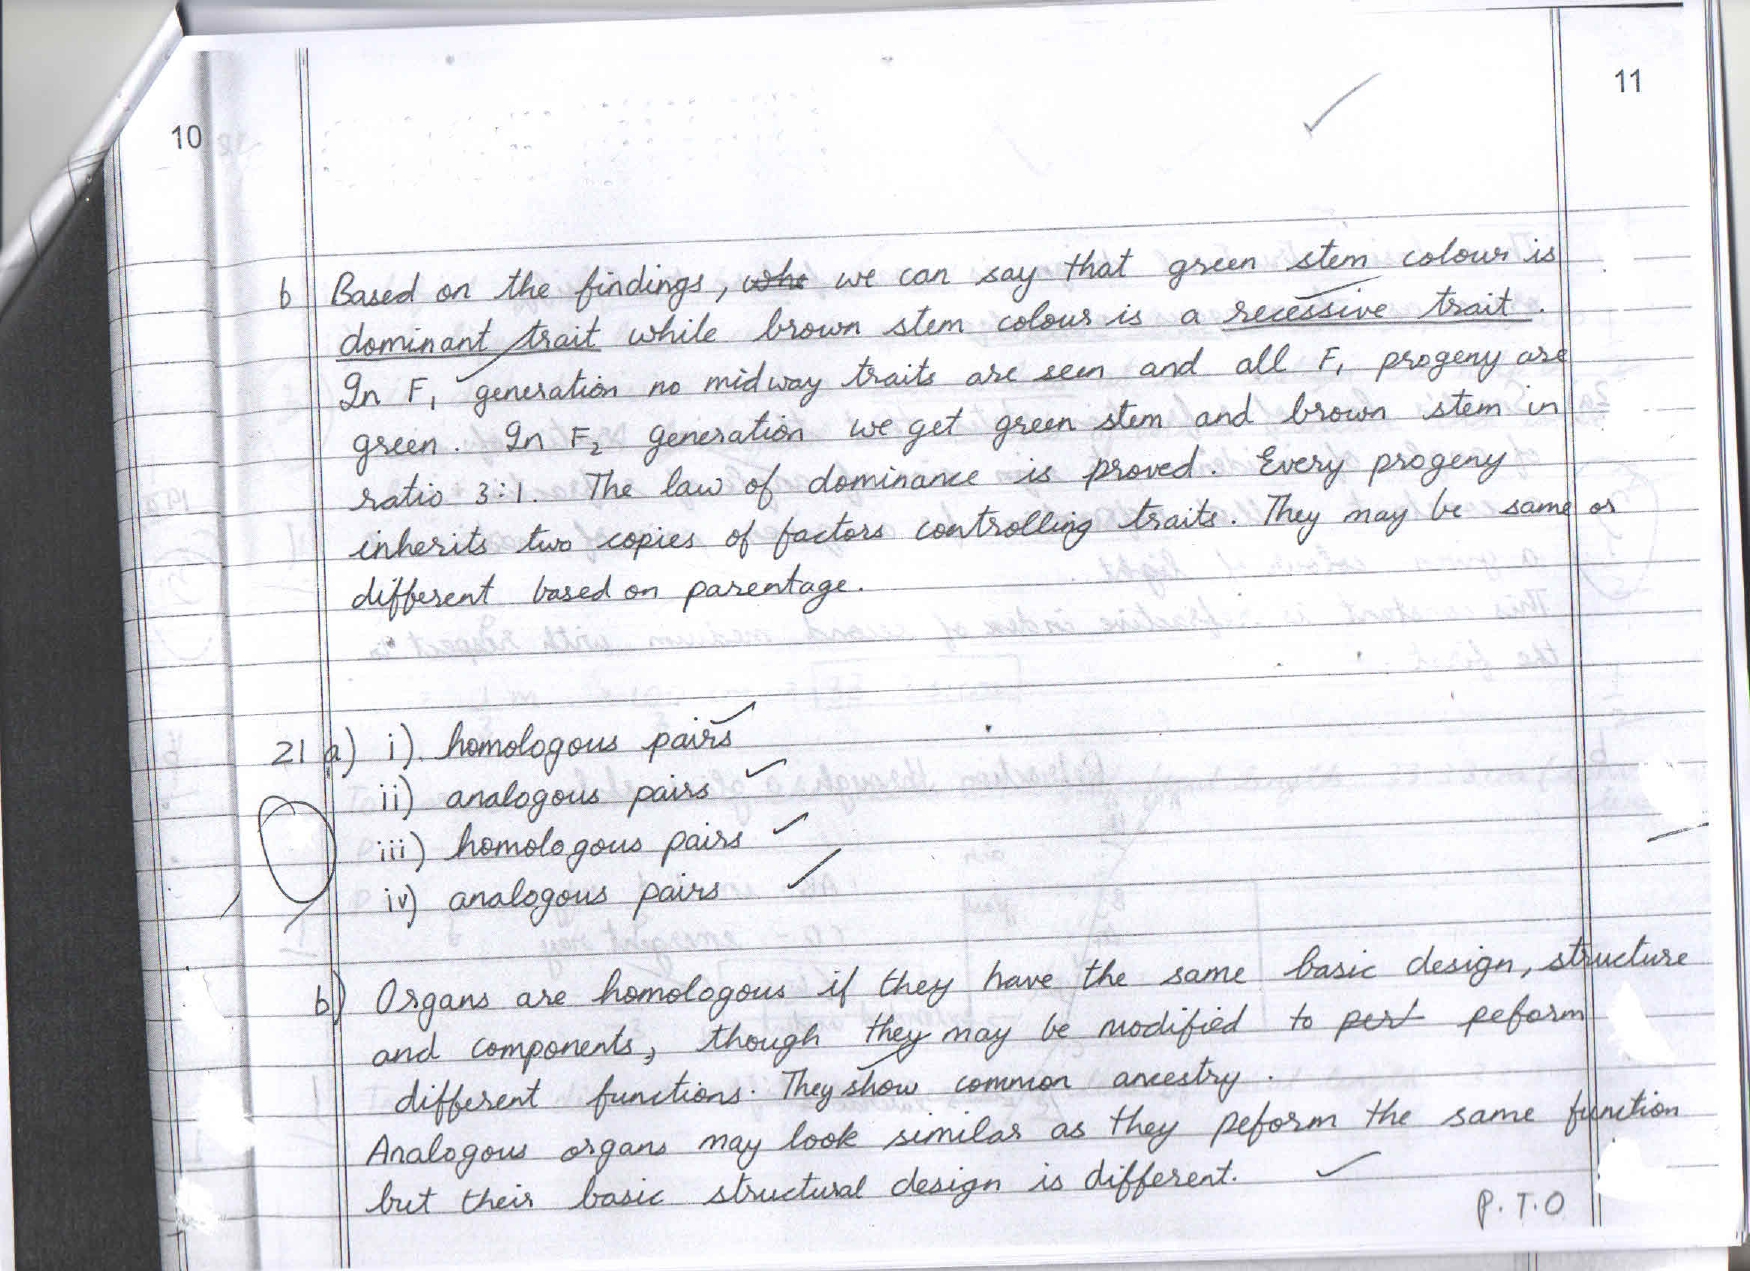 11
10
b Based on the findings, we can say that green stem colour is
dominant trait while brown stem colour is a recessive trait.
In F₁ generation no midway traits are seen and all F₁ progeny are
green. In F₂ generation we get green stem and brown stem in
ratio 3:1. The law of dominance is proved. Every progeny
inherits two copies of factors controlling traits. They may be same or
different based on parentage.
21 a) i). homologous pairs
ii) analogous pairs
iii) homologous pairs
iv) analogous pairs
b) Organs are homologous if they have the same basic design, structure
and components, though they may be modified to peform
different functions. They show common ancestry.
Analogous organs may look similar as they peform the same function
but their basic structural design is different.
P.T.O